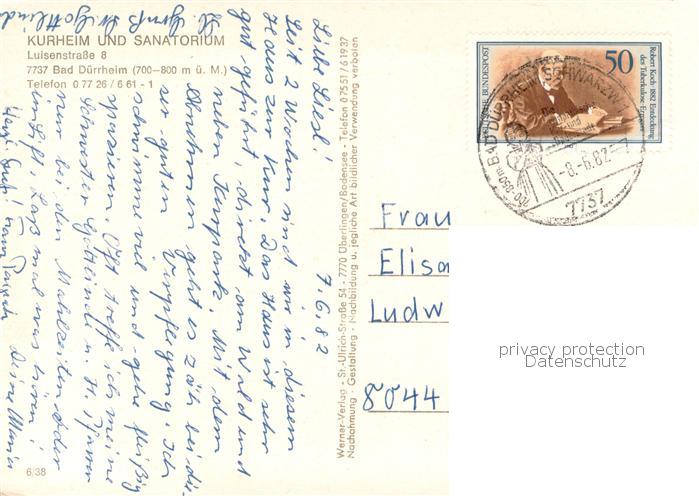 KURHEIM UND SANATORIUM
Luisenstraße 8
7737 Bad Dürrheim (700–800 m ü. M.)
Telefon 0 77 26 / 6 61 - 1
7. 6. 82
Liebe Liesl!
Seit 2 Wochen sind wir in diesem
Haus zur Kur. Das Haus ist sehr
gut geführt, direkt am Wald und
neben Kurpark. Mit dem
Abnehmen geht es zäh bei die-
ser guten Verpflegung. Ich
schwimme viel und gehe fleißig
spazieren. Oft treffe ich meine
Schwester Gottlinde u. Fr.
nur bei den Mahlzeiten oder
im Lift. Laß mal was hören!
Deine
Herzl. Grüße
Gruß Gottlinde
6/38
Werner-Verlag - St.-Ulrich-Straße 54 - 7770 Überlingen/Bodensee - Telefon 0 75 51 / 6 19 37
Nachahmung - Gestaltung - Nachbildung u. jegliche Art bildlicher Verwendung verboten
50
Robert Koch · 1882 Entdeckung
des Tuberkulose-Erregers
DEUTSCHE BUNDESPOST
BAD DÜRRHEIM SCHWARZW
700-850m
-8.-6.82--7
7737
Frau
Elisa
Ludw
8044
privacy protection
Datenschutz